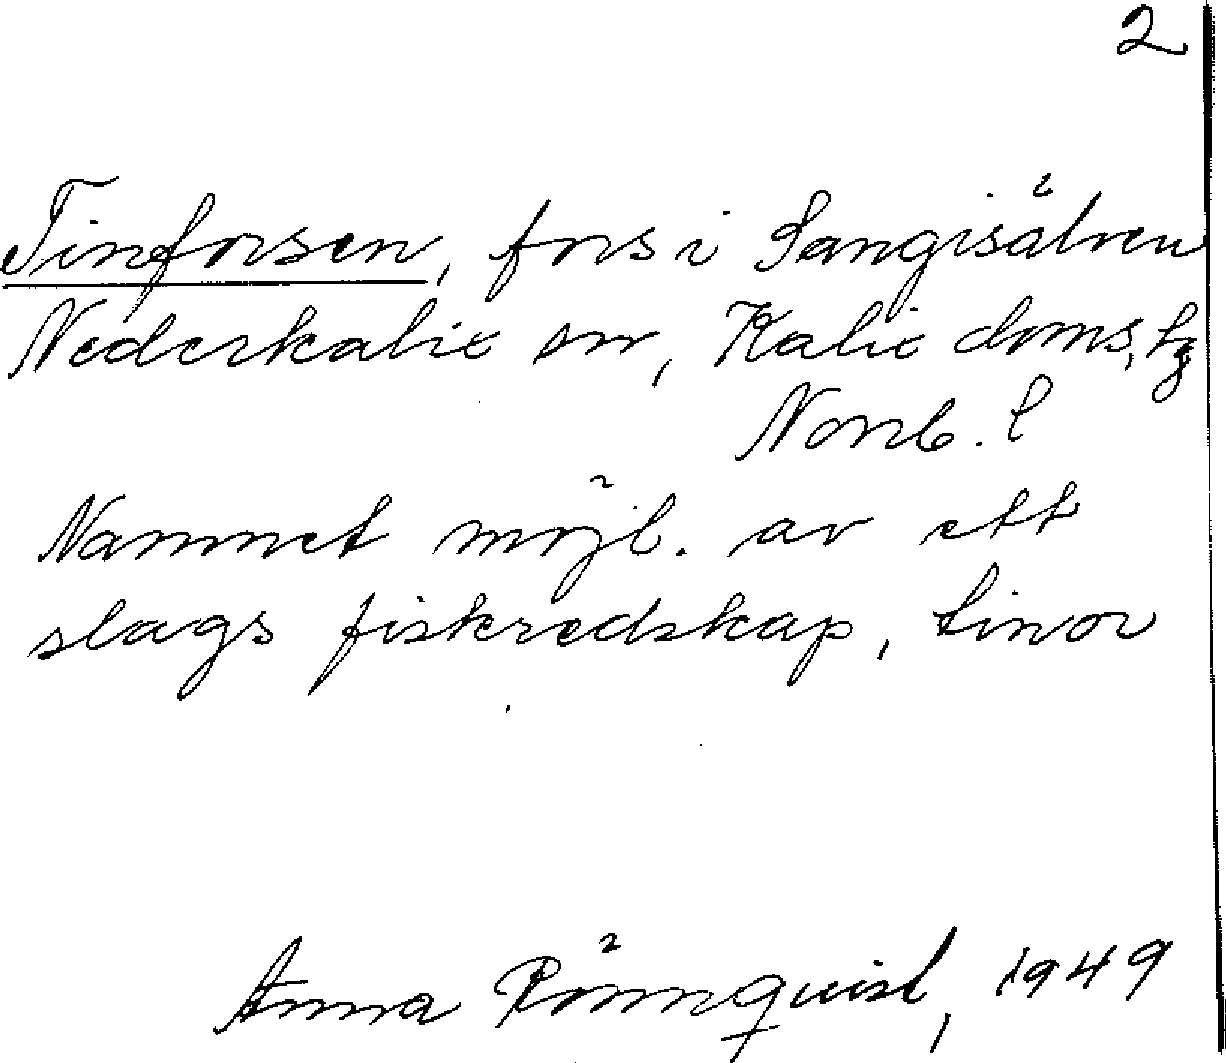 2
Tinforsen, fors i Sangisälven
Nederkalix sn, Kalix doms, lg
Norrb. l
Namnet möjl. av ett
slags fiskredskap, tinor
Anna Rönnquist, 1949